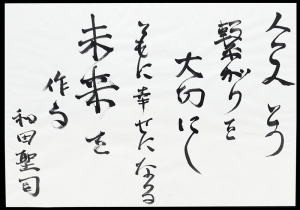 人と人との
繋がりを
大切にし
共に幸せになる
未来を
作る
和田聖司